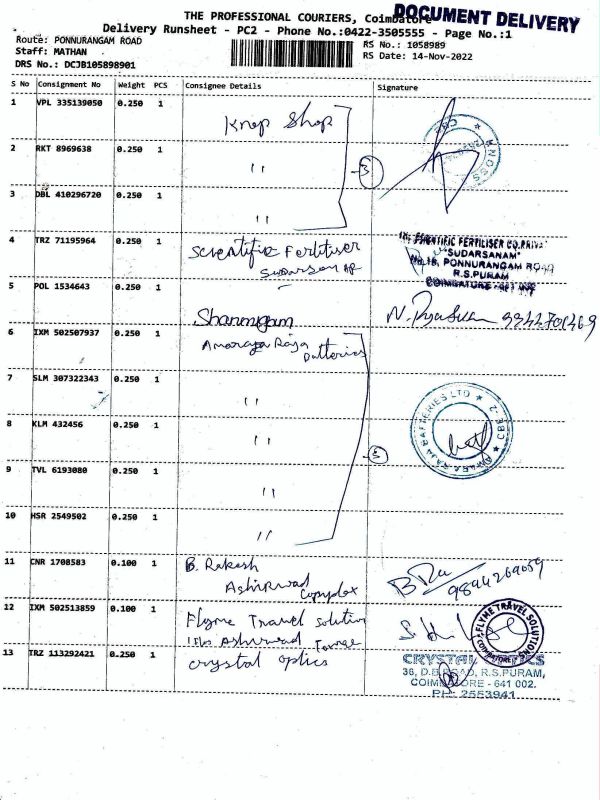 THE PROFESSIONAL COURIERS, Coimbatore
DOCUMENT DELIVERY
Delivery Runsheet - PC2 - Phone No.:0422-3505555 - Page No.:1
Route: PONNURANGAM ROAD
RS No.: 1058989
Staff: MATHAN
RS Date: 14-Nov-2022
DRS No.: DCJB105898901
S No Consignment No Weight PCS Consignee Details Signature
1 VPL 335139050 0.250 1 Knop Shop
2 RKT 8969638 0.250 1 " 3
3 DBL 410296720 0.250 1 "
4 TRZ 71195964 0.250 1 Scientific Fertiliser
SCIENTIFIC FERTILISER CO.PRIVA
"SUDARSANAM"
No.18, PONNURANGAM ROAD
R.S.PURAM
COIMBATORE - 641 002
5 POL 1534643 0.250 1 Shanmugam 9942701469
6 IXM 502507937 0.250 1 Amaraja Raja
Batteries
7 SLM 307322343 0.250 1 "
8 KLM 432456 0.250 1 "
AMARA RAJA BATTERIES LTD
9 TVL 6193080 0.250 1 "
10 HSR 2549502 0.250 1 "
11 CNR 1708583 0.100 1 B. Rakesh
Ashirwad Complex
9894269059
12 IXM 502513859 0.100 1 Flyme Travel Solution
Ashirwad Tower
FLYME TRAVEL SOLUTIONS
COIMBATORE
13 TRZ 113292421 0.250 1 crystal optics
CRYSTAL OPTICS
36, D.B.ROAD, R.S.PURAM,
COIMBATORE - 641 002.
PH: 2553941